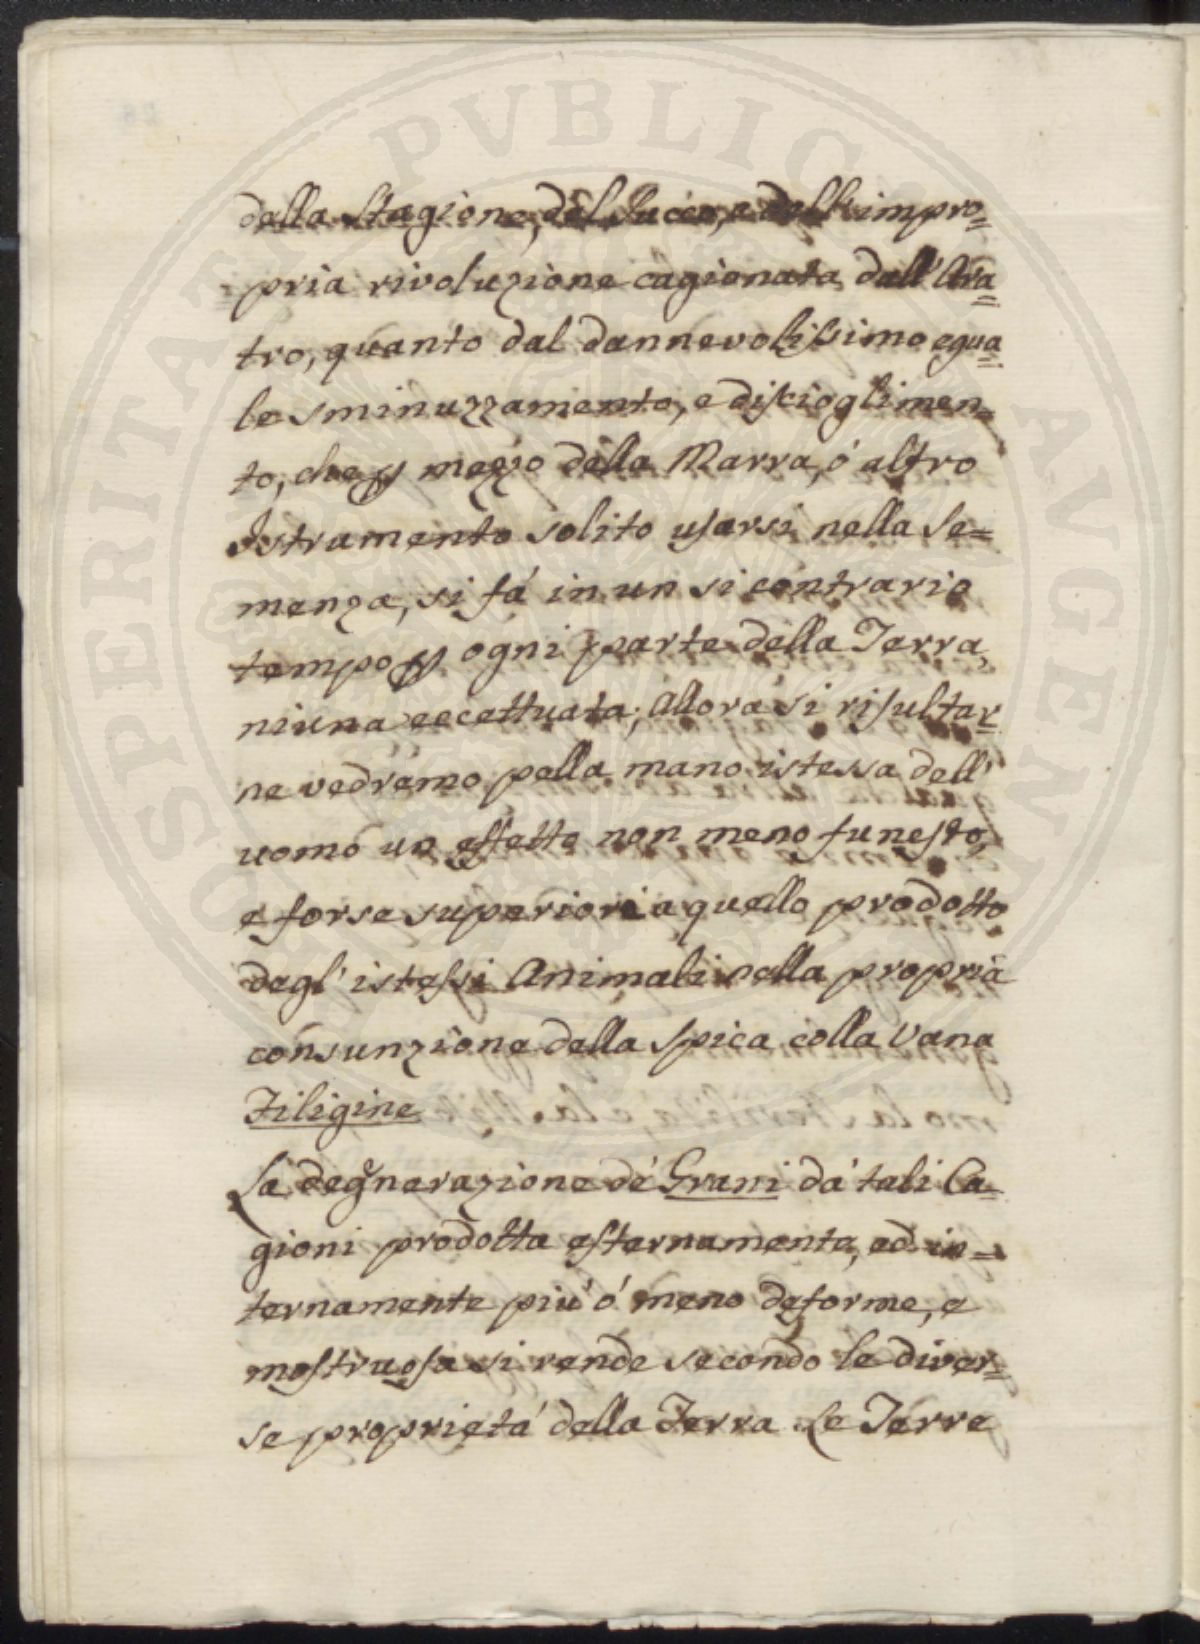 della Stagione, del Succo, e dell'impro=
pria rivoluzione cagionata dall'Ara=
tro, quanto dal dannevolissimo egua=
le sminuzzamento, e discioglimen=
to, che p mezzo della Marra, ó altro
Istramento solito usarsi nella Se=
menza, si fá in un si contrario
tempo p ogni parte della Terra,
niuna eccettuata; Allora si risultar
ne vedremo pella mano istessa dell'
uomó un effetto non meno funesto,
e forse superiore a quello prodotto
dagl'istessi Animali nella propria
consunzione della Spica colla Vana
Filigine
La degnerazione dé Grani dá tali Ca=
gioni prodotta esternamente, ed in=
ternamente piú ó meno deforme, e
mostruosa si rende secondo le diver=
se proprietá della Terra. Le Terre
PROSPERITATI PUBLICAE AVGENDAE